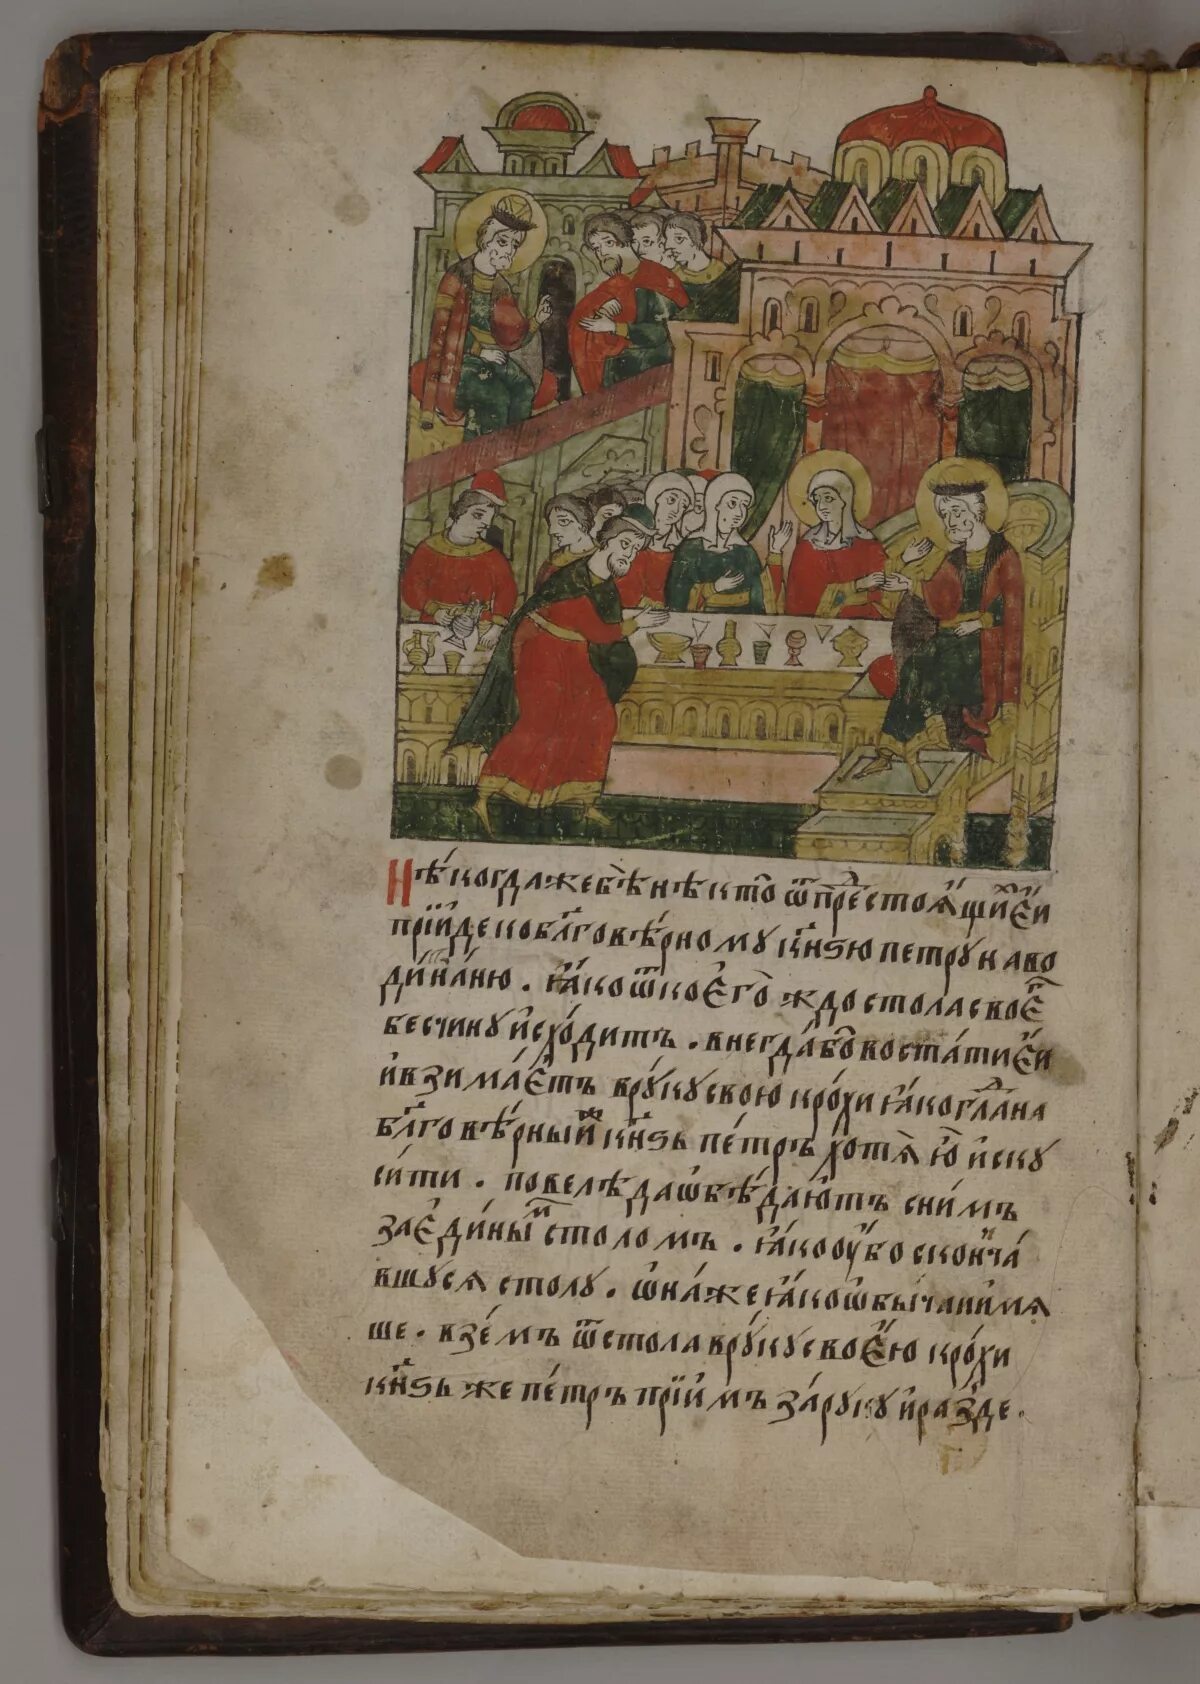 Нѣ́когда же бѣ̀ нѣ́ктоⷤ ѿ преⷣстоѧ́щиⷯ е҆́й
прїи́де ко бл҃говѣ́рному кн҃зю петру нава
ди́ти на ню̀. ꙗ҆́ко ѿ коегѡ́ждо стола своеⷢ҇
бесчину и҆схо́дитъ. внегда́ бо воста́ти е҆́й
и҆ взима́етъ в рꙋ́кꙋ свою кро́хи ꙗ҆́ко гла́дна
бл҃говѣ́рный же кн҃зь пе́тръ хотѧ̀ ю҆̀ искꙋ
си́ти. повелѣ̀ да ѡ҆бѣ́даютъ с ни́мъ
за еди́нымъ столомъ. ꙗ҆́ко оу҆́бо сконча́
вшꙋсѧ столꙋ. ѡ҆на́ же ꙗ҆́ко ѡ҆бы́чай и҆мѧ
ше. взе́мъ ѿ стола в рꙋ́кꙋ своє́ю кро́хи
кн҃зь же пе́тръ прїи́мъ за́ рꙋкꙋ и҆ разде.